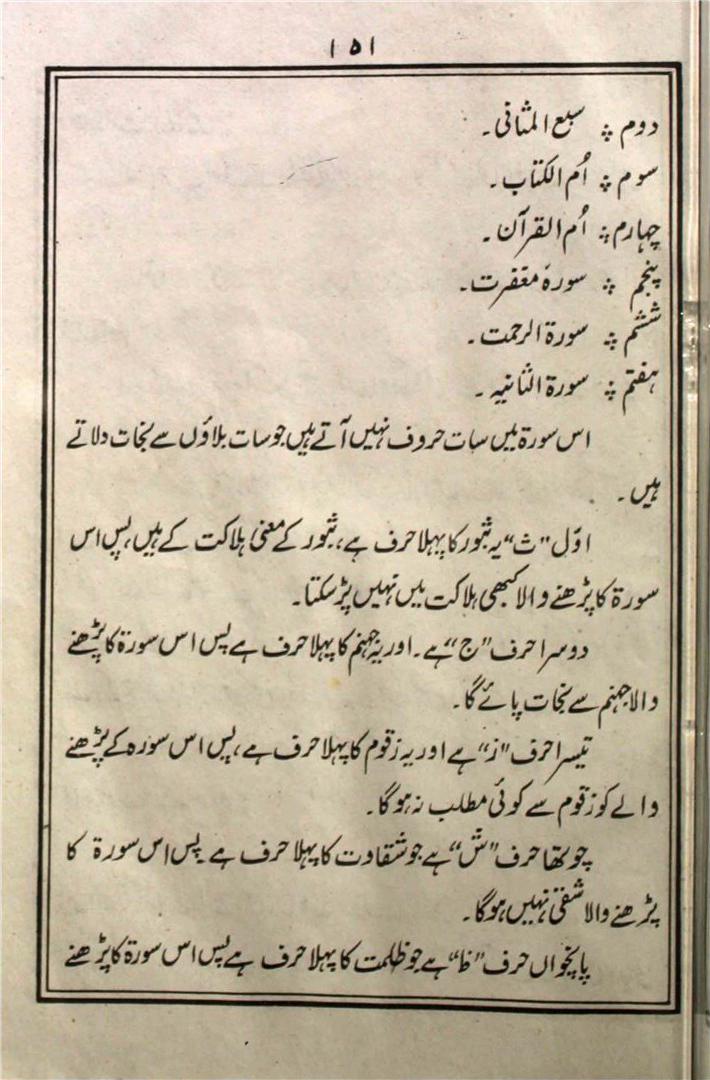 ۱۵۱
دوم :: سبع المثانی۔
سوم :: اُم الکتاب۔
چہارم :: اُم القرآن۔
پنجم :: سورۂ مغفرت۔
ششم :: سورۃ الرحمت۔
ہفتم :: سورۃ الثانیہ۔
اس سورۃ میں سات حروف نہیں آتے ہیں جو سات بلاؤں سے نجات دلاتے
ہیں۔
اوّل "ث" یہ ثبور کا پہلا حرف ہے، ثبور کے معنی ہلاکت کے ہیں، پس اس
سورۃ کا پڑھنے والا کبھی ہلاکت میں نہیں پڑ سکتا۔
دوسرا حرف "ج" ہے۔ اور یہ جہنم کا پہلا حرف ہے پس اس سورۃ کا پڑھنے
والا جہنم سے نجات پائے گا۔
تیسرا حرف "ز" ہے اور یہ زقوم کا پہلا حرف ہے، پس اس سورہ کے پڑھنے
والے کو زقوم سے کوئی مطلب نہ ہوگا۔
چوتھا حرف "ش" ہے جو شقاوت کا پہلا حرف ہے۔ پس اس سورۃ کا
پڑھنے والا شقی نہیں ہوگا۔
پانچواں حرف "ظ" ہے جو ظلمت کا پہلا حرف ہے پس اس سورۃ کا پڑھنے